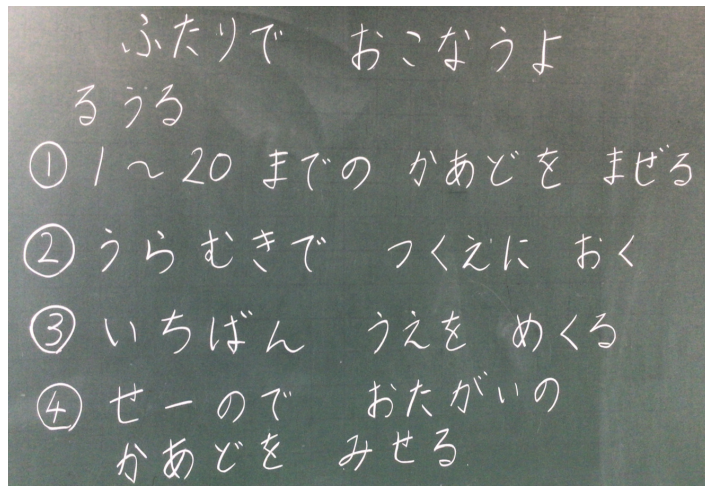 ふたりで おこなうよ
るうる
① 1〜20 までの かあどを まぜる
② うらむきで つくえに おく
③ いちばん うえを めくる
④ せーので おたがいの
かあどを みせる